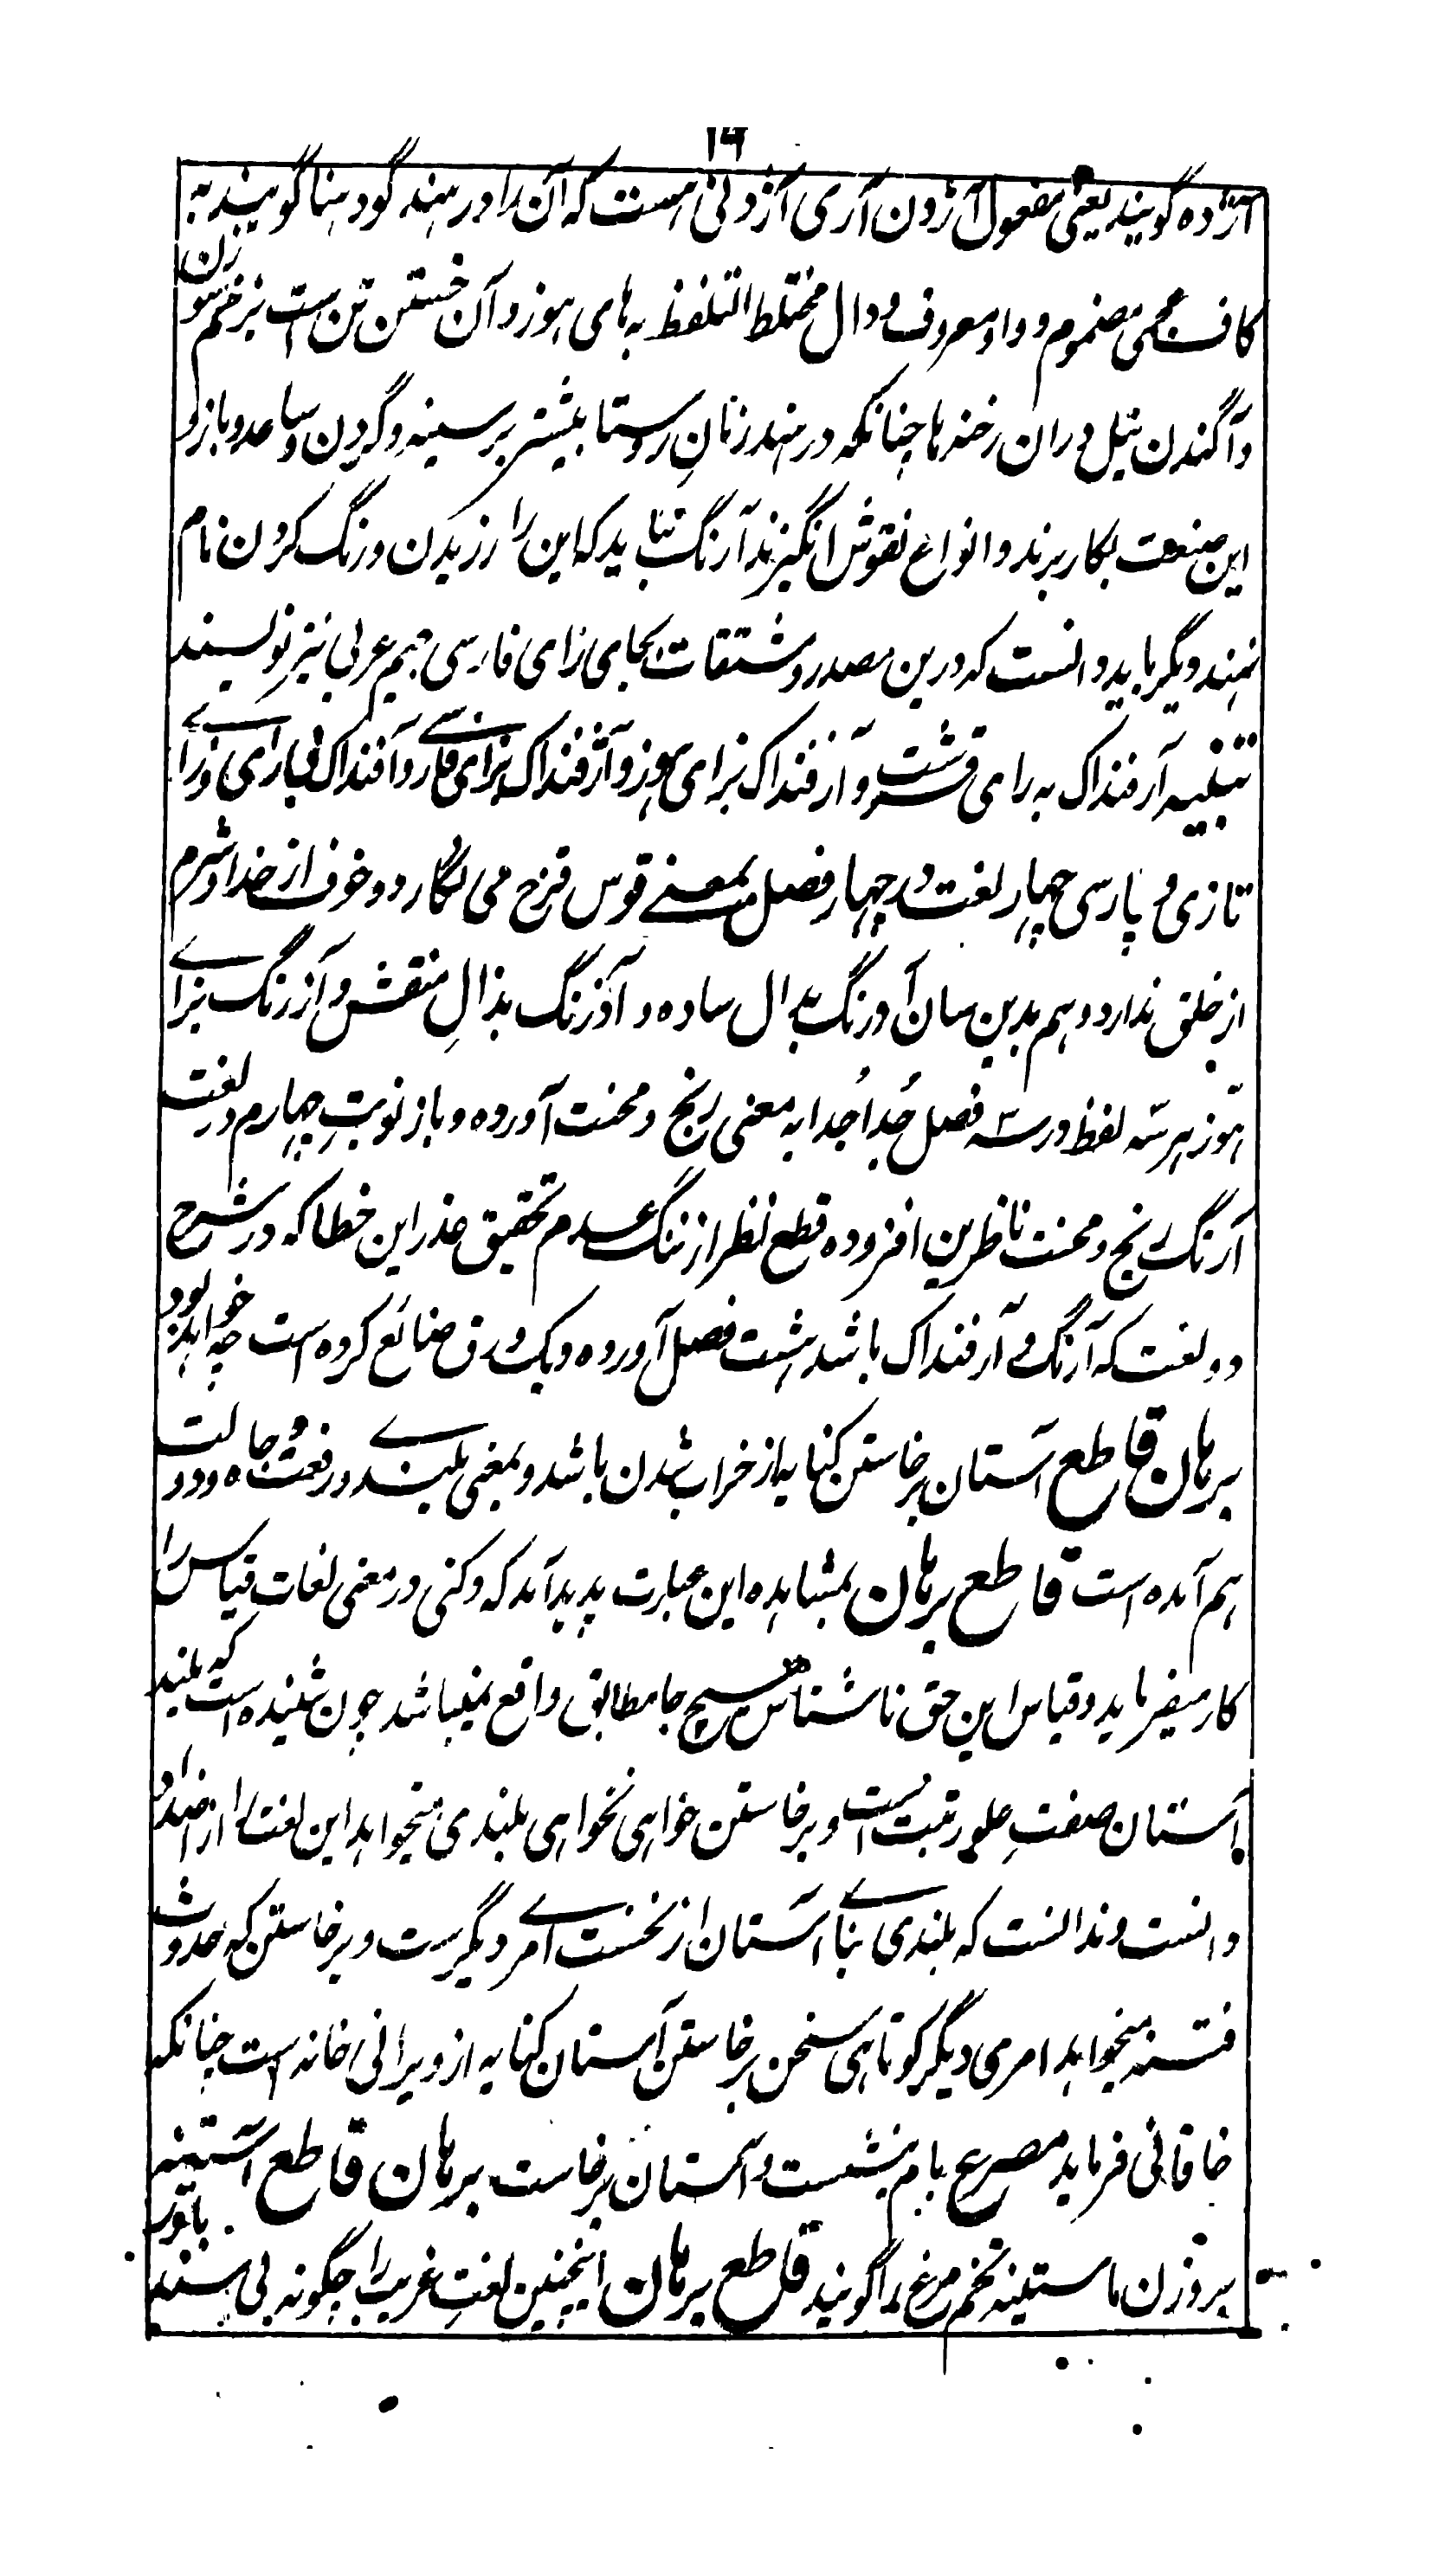 ۱۶
آژده گویند یعنی مفعول آژدن آری آژدنی هست که آن را در هند گودهنا گویند به
کاف عجمی مضموم و واو معروف و دال مختلط التلفظ به های هوز و آن خستن تن است بزخم سوزن
و آگندن نیل دران رخنه ها چنانکه در هند زنانِ روستا بیشتر بر سینه و گردن و ساعد و بازو
این صنعت بکار برند و انواع نقوش انگیزند آژنگ نباید که این را رزیدن و رنگ کردن نام
نهند دیگر باید دانست که درین مصدر و مشتقات بجای زای فارسی جیم عربی نیز نویسند
تنبیه آرفنداک به رای قرشت و آزفنداک بزای هوز و آژفنداک بزای فارسی و آفنداک بی رای و زای
تازی و پارسی چهار لغت در چهار فصل بمعنی قوس قزح می نگارد و خوف از خدا و شرم
از خلق ندارد و هم بدین سان آدرنگ بدال ساده و آذرنگ بذالِ منقش و آزرنگ بزای
هوّز هر سه لفظ در سه فصل جُدا جُدا به معنی رنج و محنت آورده و باز نوبتِ چهارم در لغت
آرنگ رنج و محنت ناظرین افزوده قطع نظر از ننگ عدم تحقیق عذر این خطا که در شرح
دو لغت که آرنگ و آرفنداک باشد هشت فصل آورده و یک ورق ضائع کرده است چه خواهد بود
برهان قاطع آستان برخاستن کنایه از خراب شدن باشد و بمعنی بلندی و رفعت جاه و دولت
هم آمده است قاطع برهان بمشاهده این عبارت پدید آمد که دکنی در معنی لغات قیاس را
کار میفرماید و قیاس این حق ناشناس هیچ جا مطابق واقع نمیباشد چون شنیده است که بلند
آستان صفتِ علو رتبت است و برخاستن خواهی نخواهی بلندی میخواهد این لغت را از اضداد
دانست و ندانست که بلندی بنای آستان از نخست امری دیگرست و برخاستن که حدوث
فتنه میخواهد امری دیگر کوتاهی سخن برخاستن آستان کنایه از ویرانی خانه است چنانکه
خاقانی فرماید مصرع بام بنشست و آستان برخاست برهان قاطع آستینه با تو
بروزن ماستینه تخم مرغ را گویند قاطع برهان اینچنین لغتِ غریب را چگونه بی سند